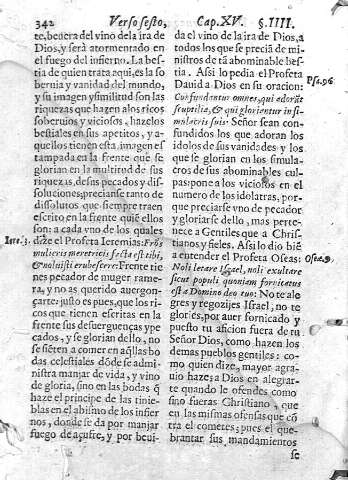 342 Verso sesto, Cap.XV. §.IIII.
te, beuera del vino dela ira de
Dios, y será atormentado en
el fuego del infierno. La bes-
tia de quien trata aqui, es la so
beruia y vanidad del mundo,
y su imagen y similitud son las
riquezas que hazen alos ricos
soberuios y viciosos, hazelos
bestiales en sus apetitos, y a-
quellos tienen esta imagen es
tampada en la frente que se
glorian en la multitud de sus
riquezas, de sus pecados y dis-
soluciones, preciansè tanto de
dissolutos que siempre traen
escrito en la frente quiē ellos
son: a cada vno de los quales
Iere.3. dize el Profeta Ieremias: Frōs
mulieris meretricis facta est tibi,
& noluisti erubescere: Frente tie
nes pecador de muger rame-
ra, y no as querido auergon-
çarte: justo es pues, que los ri-
cos que tienen escritas en la
frente sus desuerguenças y pe
cados, y se glorian dello, no
se siēten a comer en aq̃llas bo
das celestiales dōde se admi-
nistra manjar de vida, y vino
de gloria, sino en las bodas q̃
haze el principe de las tinie-
blas en el abismo de los infier
nos, donde se da por manjar
fuego de açufre, y por beui-
da el vino de la ira de Dios, a
todos los que se preciā de mi-
nistros de tā abominable bes-
tia. Asi lo pedia el Profeta
Dauid a Dios en su oracion: Psa.96
Confundantur omnes, qui adorāt
sculptilia, & qui gloriantur in si-
mulacris suis. Señor sean con-
fundidos los que adoran los
idolos de sus vanidades y los
que se glorian en los simula-
cros de sus abominables cul-
pas: pone a los viciosos en el
numero de los idolatras, por-
que preciarse vno de pecador
y gloriarse dello, mas perte-
nece a Gentiles que a Chris-
tianos y fieles. Asi lo dio biē
a entender el Profeta Oseas: Osea.9.
Noli letare Israel, noli exultare
sicut populi quoniam fornicatus
est a Domino deo tuo: No te ale
gres y regozijes Israel, no te
glories, por auer fornicado y
puesto tu aficion fuera de tu
Señor Dios, como hazen los
demas pueblos gentiles: co-
mo quien dize, mayor agra-
uio haze; a Dios en alegrar-
te quando le ofendes como
sino fueras Christiano, que
en las mismas ofensas que cō
tra el cometes; pues el que-
brantar sus mandamientos
se